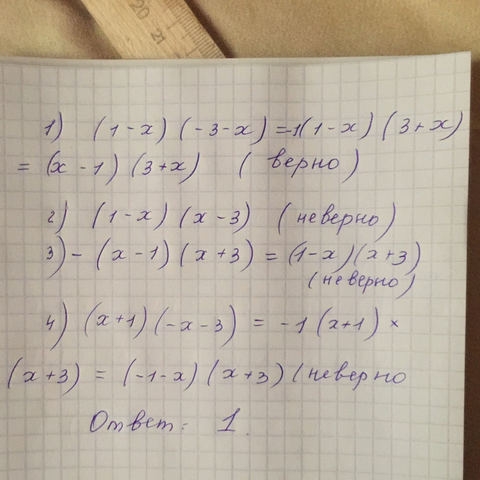 20 21
1) (1-x)(-3-x)=-1(1-x)(3+x)
= (x-1)(3+x) (верно)
2) (1-x)(x-3) (неверно)
3) -(x-1)(x+3) = (1-x)(x+3)
(неверно)
4) (x+1)(-x-3) = -1(x+1) ×
(x+3) = (-1-x)(x+3) (неверно
Ответ: 1.